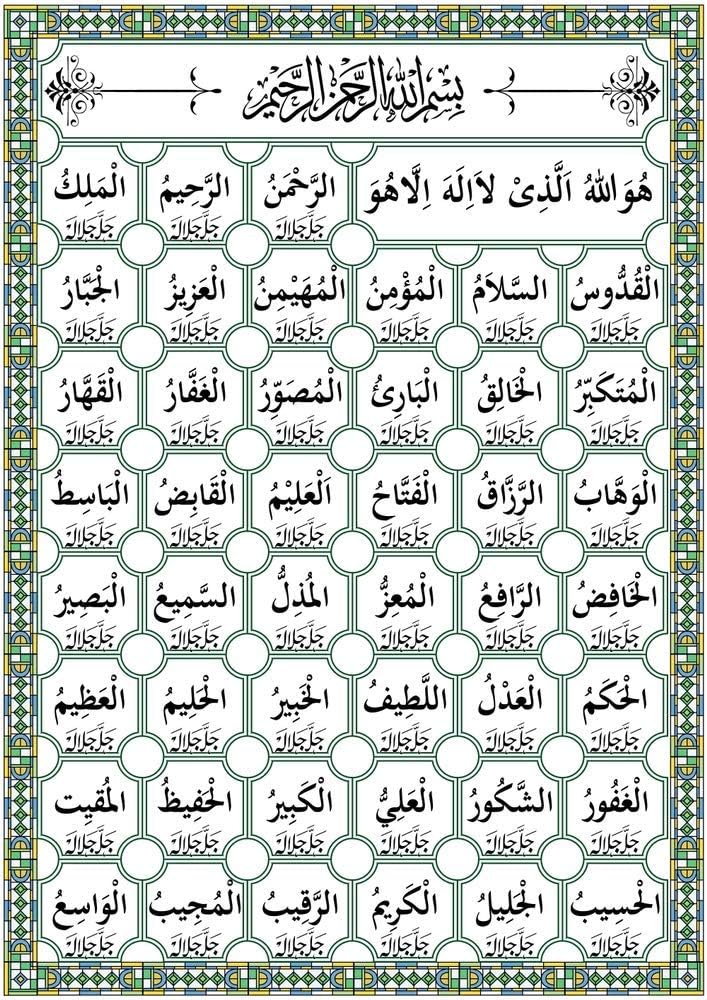 بِسْمِ اللهِ الرَّحْمٰنِ الرَّحِيْمِ
هُوَ اللهُ الَّذِىْ لَا اِلَهَ اِلَّا هُوَ الرَّحْمٰنُ الرَّحِيمُ الْمَلِكُ
جَلَّ جَلَالُهُ جَلَّ جَلَالُهُ جَلَّ جَلَالُهُ
الْقُدُّوسُ السَّلَامُ الْمُؤْمِنُ الْمُهَيْمِنُ الْعَزِيزُ الْجَبَّارُ
جَلَّ جَلَالُهُ جَلَّ جَلَالُهُ جَلَّ جَلَالُهُ جَلَّ جَلَالُهُ جَلَّ جَلَالُهُ جَلَّ جَلَالُهُ
الْمُتَكَبِّرُ الْخَالِقُ الْبَارِئُ الْمُصَوِّرُ الْغَفَّارُ الْقَهَّارُ
جَلَّ جَلَالُهُ جَلَّ جَلَالُهُ جَلَّ جَلَالُهُ جَلَّ جَلَالُهُ جَلَّ جَلَالُهُ جَلَّ جَلَالُهُ
الْوَهَّابُ الرَّزَّاقُ الْفَتَّاحُ اَلْعَلِيْمُ الْقَابِضُ الْبَاسِطُ
جَلَّ جَلَالُهُ جَلَّ جَلَالُهُ جَلَّ جَلَالُهُ جَلَّ جَلَالُهُ جَلَّ جَلَالُهُ جَلَّ جَلَالُهُ
الْخَافِضُ الرَّافِعُ الْمُعِزُّ الْمُذِلُّ السَّمِيعُ الْبَصِيرُ
جَلَّ جَلَالُهُ جَلَّ جَلَالُهُ جَلَّ جَلَالُهُ جَلَّ جَلَالُهُ جَلَّ جَلَالُهُ جَلَّ جَلَالُهُ
الْحَكَمُ الْعَدْلُ اللَّطِيفُ الْخَبِيرُ الْحَلِيمُ الْعَظِيمُ
جَلَّ جَلَالُهُ جَلَّ جَلَالُهُ جَلَّ جَلَالُهُ جَلَّ جَلَالُهُ جَلَّ جَلَالُهُ جَلَّ جَلَالُهُ
الْغَفُورُ الشَّكُورُ الْعَلِيُّ الْكَبِيرُ الْحَفِيظُ الْمُقِيت
جَلَّ جَلَالُهُ جَلَّ جَلَالُهُ جَلَّ جَلَالُهُ جَلَّ جَلَالُهُ جَلَّ جَلَالُهُ جَلَّ جَلَالُهُ
الْحَسِيبُ الْجَلِيلُ الْكَرِيمُ الرَّقِيبُ الْمُجِيبُ الْوَاسِعُ
جَلَّ جَلَالُهُ جَلَّ جَلَالُهُ جَلَّ جَلَالُهُ جَلَّ جَلَالُهُ جَلَّ جَلَالُهُ جَلَّ جَلَالُهُ